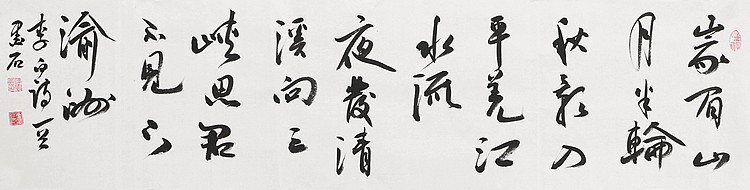 峩眉山
月半輪
秋影入
平羌江
水流
夜發清
溪向三
峽思君
不見下
渝洲
李白詩一首
墨石